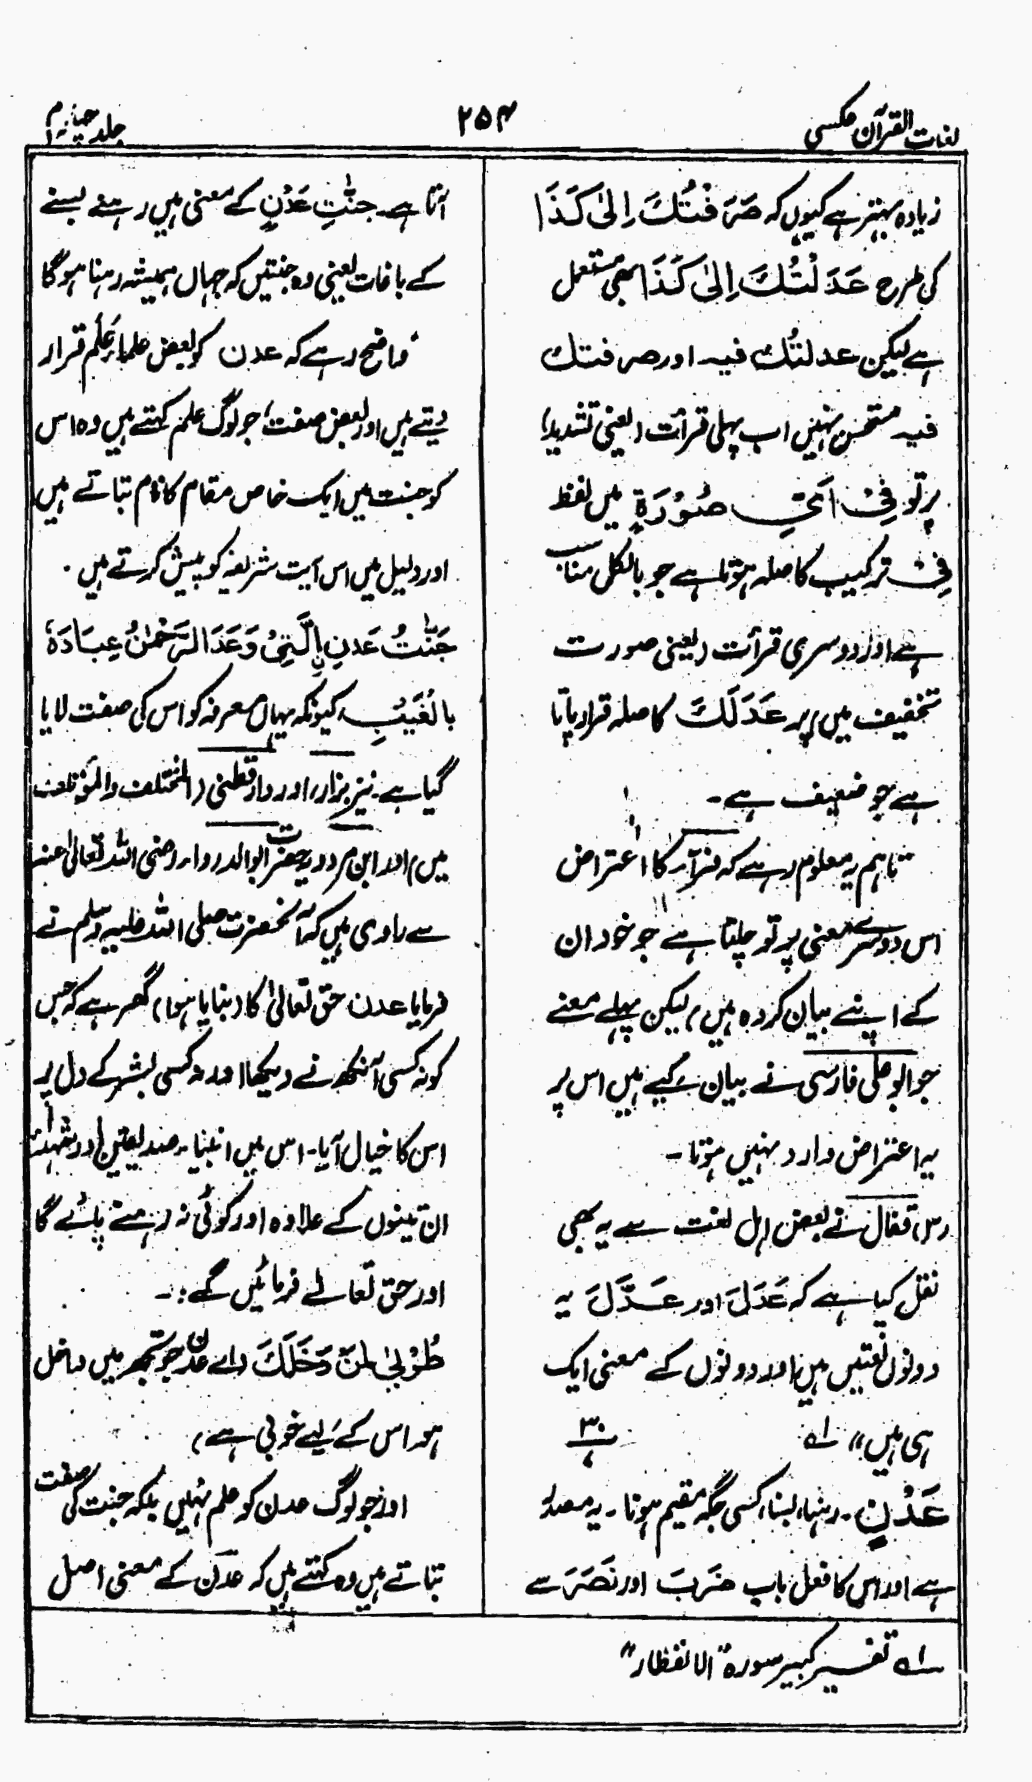 لغات القرآن عکسی
۲۵۴
جلد چہارم
زیادہ بہتر ہے کیوں کہ صَرَفْتُكَ اِلیٰ كَذَا
کی طرح عَدَلْتُكَ اِلیٰ كَذَا بھی مستعمل
ہے لیکن عدلتُك فیہ اور صرفتك
فیہ مستحسن نہیں اب پہلی قرأت (یعنی تشدید)
پر تو فِیْ اَیِّ صُوْرَةٍ میں لفظ
فِیْ ترکیب کا صلہ ہوتا ہے جو بالکل مناسب
ہے اور دوسری قرأت (یعنی صورت
تخفیف میں) پر عَدَلَكَ کا صلہ قرار پاتا
ہے جو ضعیف ہے۔
تاہم یہ معلوم رہے کہ فرآء کا اعتراض
اس دوسرے معنی پر تو چلتا ہے جو خود ان
کے اپنے بیان کردہ ہیں، لیکن پہلے معنے
جو ابو علی فارسی نے بیان کیے ہیں اس پر
یہ اعتراض وارد نہیں ہوتا۔
(۳) قفال نے بعض اہل لغت سے یہ بھی
نقل کیا ہے کہ عَدَلَ اور عَدَّلَ یہ
دونوں لغتیں ہیں اور دونوں کے معنی ایک
ہی ہیں" ۱ے ۳۰
عَدْنٍ۔ رہنا، بسنا، کسی جگہ مقیم ہونا۔ یہ مصدر
ہے اور اس کا فعل باب ضَرَبَ اور نَصَرَ سے
آتا ہے۔ جَنّٰتِ عَدْنٍ کے معنی ہیں رہنے بسنے
کے باغات یعنی وہ جنتیں کہ جہاں ہمیشہ رہنا ہوگا
واضح رہے کہ عدن کو بعض علماء عَلَم قرار
دیتے ہیں اور بعض صفت، جو لوگ علم کہتے ہیں وہ اس
کو جنت میں ایک خاص مقام کا نام بتاتے ہیں
اور دلیل میں اس آیت شریفہ کو پیش کرتے ہیں۔
جَنّٰتُ عَدْنِ ۣالَّتِیْ وَعَدَ الرَّحْمٰنُ عِبَادَهٗ
بِالْغَیْبِ، کیونکہ یہاں معرفہ کو اس کی صفت لایا
گیا ہے۔ نیز بزار، اور دارقطنی (المختلف والمؤتلف
میں) اور ابن مردویہ حضرت ابوالدرداء رضی اللہ تعالیٰ عنہ
سے راوی ہیں کہ آنحضرت صلی اللہ علیہ وسلم نے
فرمایا عدن حق تعالیٰ کا (بنایا ہوا) گھر ہے کہ جس
کو نہ کسی آنکھ نے دیکھا اور نہ کسی بشر کے دل پر
اس کا خیال آیا۔ اس میں انبیاء، صدیقین اور شہداء
ان تینوں کے علاوہ اور کوئی نہ رہنے پائے گا
اور حق تعالےٰ فرمائیں گے:۔
طُوْبیٰ لِمَنْ دَخَلَكَ (اے عدن جو تجھ میں داخل
ہو اس کے لیے خوبی ہے)
اور جو لوگ عدن کو علم نہیں بلکہ جنت کی صفت
بتاتے ہیں وہ کہتے ہیں کہ عدن کے معنی اصل
۱ے تفسیر کبیر سورۃ "الانفطار"